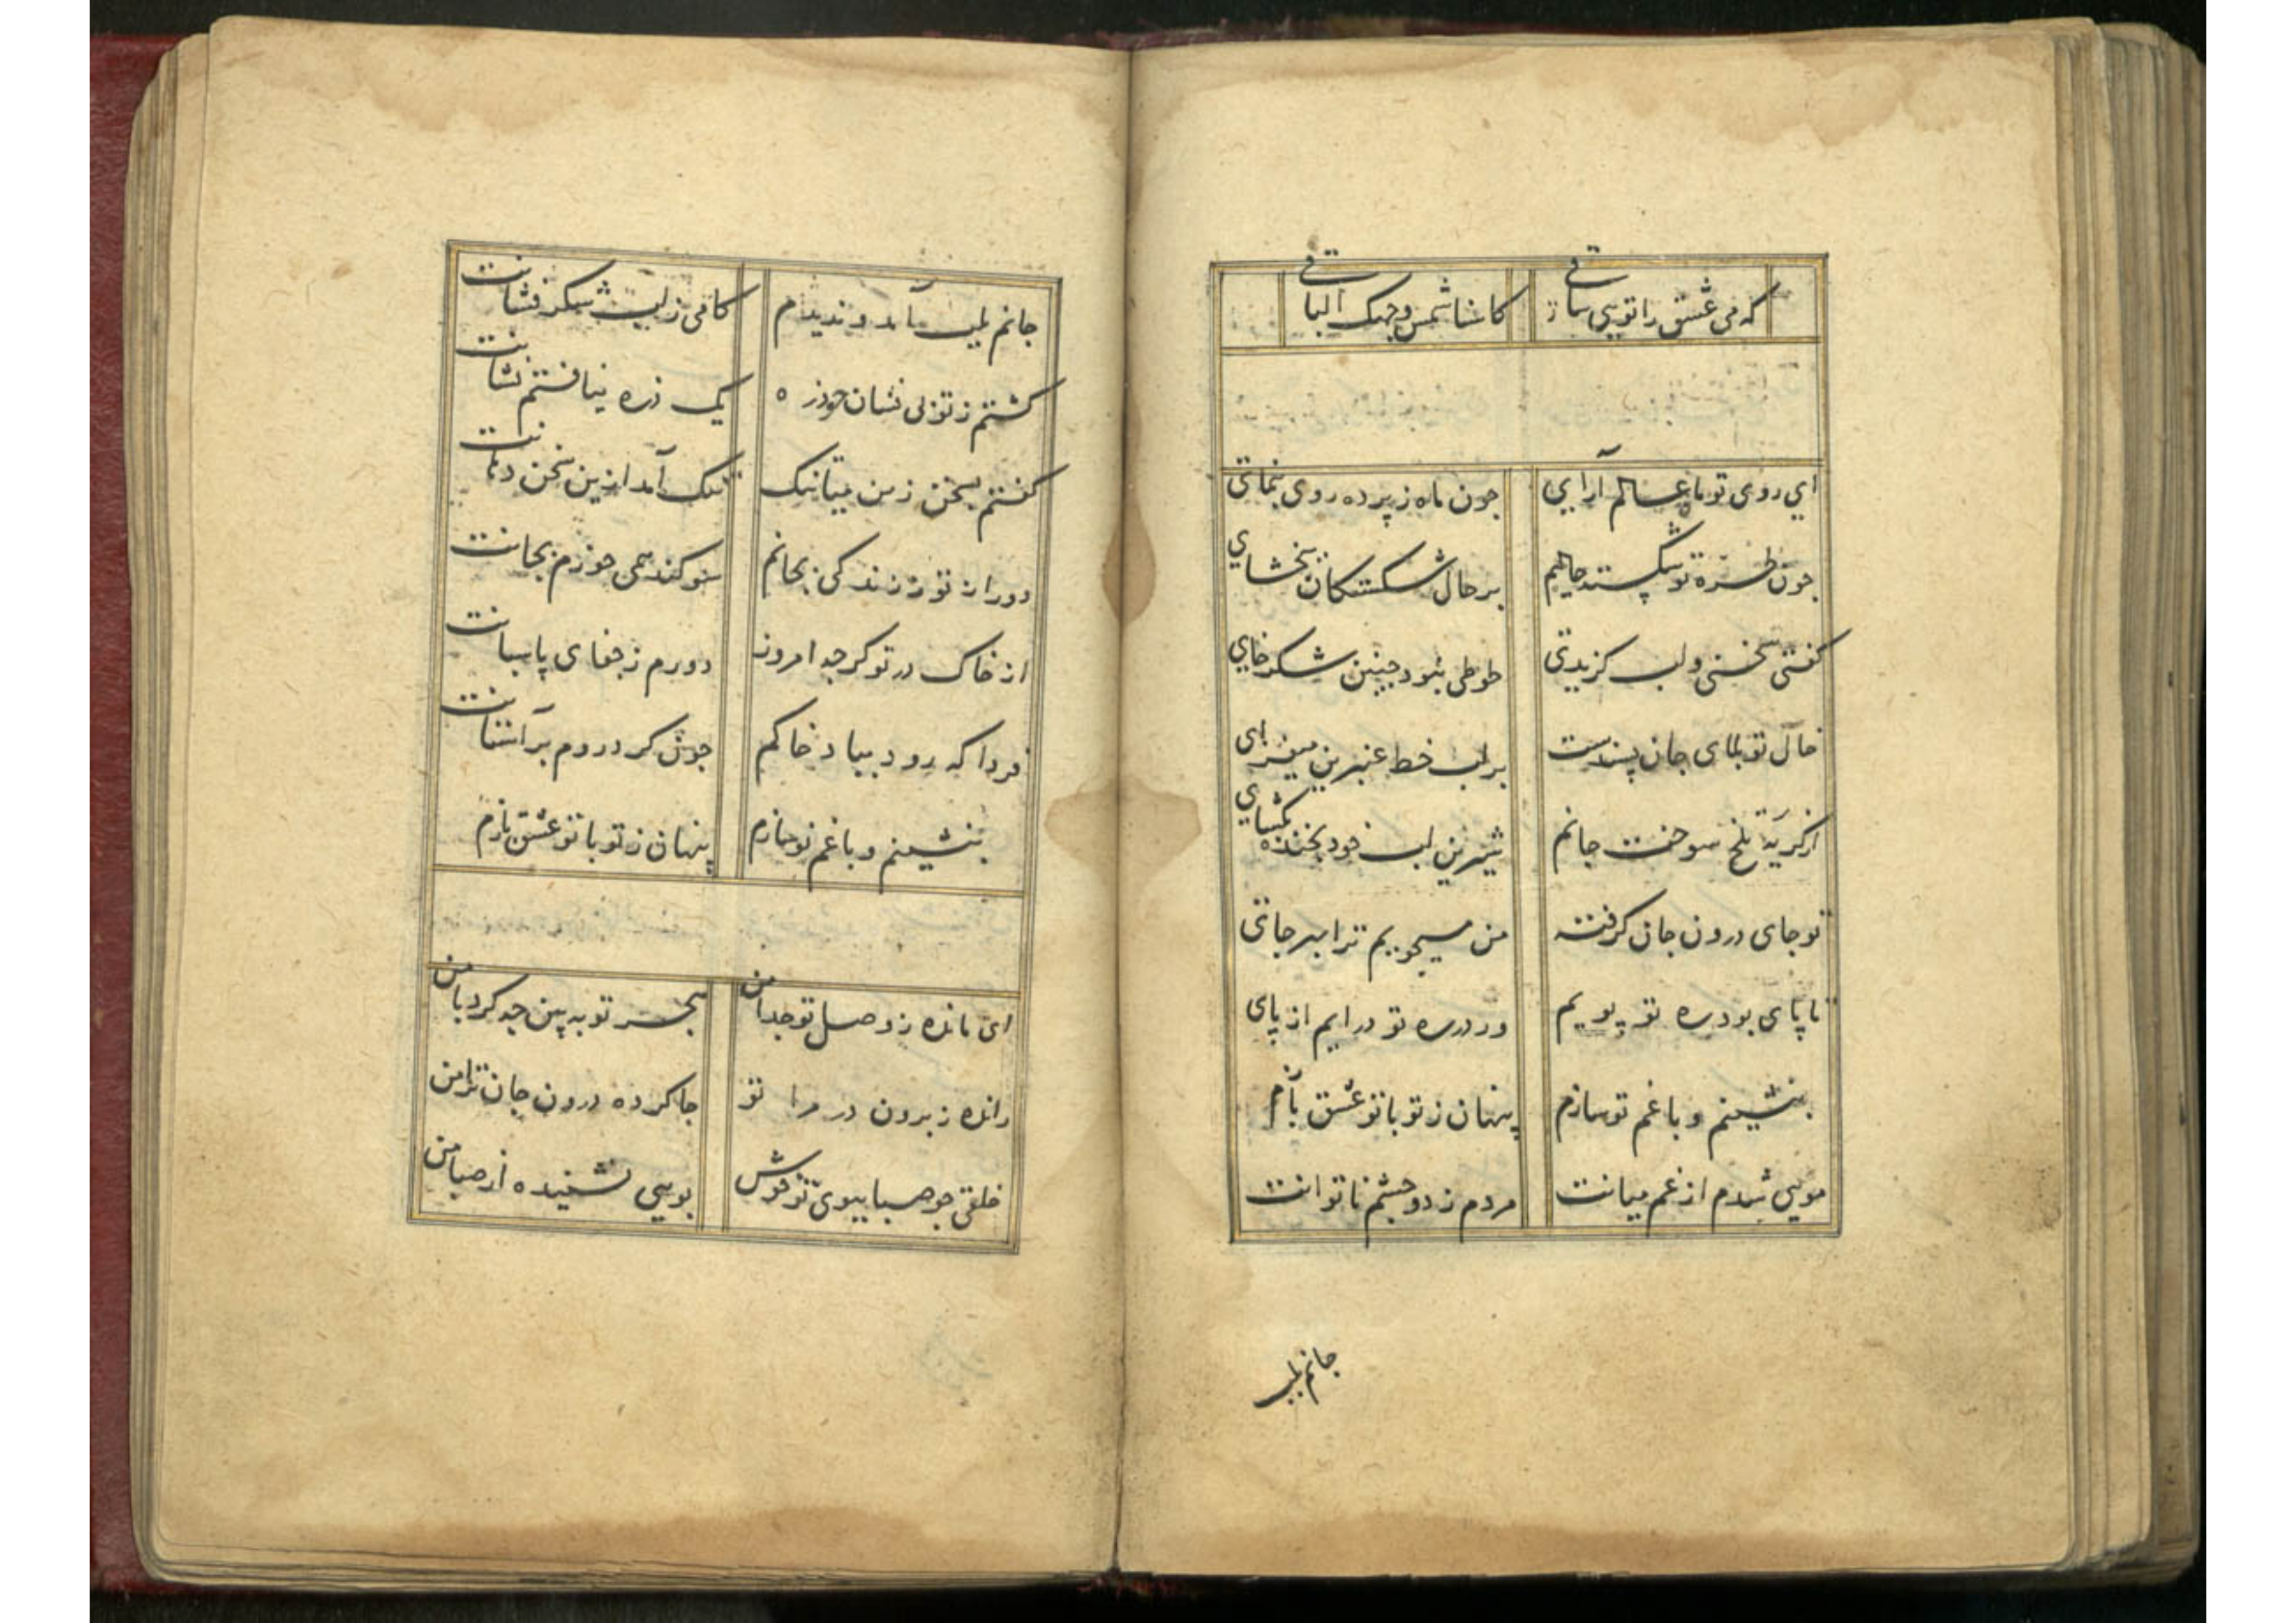 که می عشق را تویی ساقی کاسنا شمس وجهک الباقی
ای روی تو ماه عالم آرایی جون ماه ز پرده روی بنمای
جون طره تو شکسته حالیم بر حال شکستکان ببخشای
کفتی سخنی و لب کزیدی طوطی نبود جنین شکر خای
خال تو بلای جان پسندست بر لب خط عنبرین میفزای
از کریهٔ تلخ سوخت جانم شیرین لب خود بخنده بکشای
تو جای درون جان کرفته من میجویم ترا بهر جای
تا پای بود ره تو پویم ور در ره تو درایم از پای
بنشینم و با غم تو سازم پنهان ز تو با تو عشق بازم
مویی شدم از غم میانت مردم ز دو جشم ناتوانت
جانم بلب
جانم بلب آمد و ندیدم کامی ز لب شکر فشانت
کشتم ز تو بی نشان و زتو یک ذره نیافتم نشانت
کفتم سخن ز من میانک تنک آمد ازین سخن دهانت
دور از تو ز زندکی بجانم سوکند همی خورم بجانت
از خاک در تو کرجه امروز دورم ز جفای پاسبانت
فردا که رود بباد خاکم جون کرد روم بر آستانت
بنشینم و با غم تو سازم پنهان ز تو با تو عشق بازم
ای مانده ز وصل تو جدا من هجر تو ببین جه کرد با من
رانده ز برون در مرا تو جا کرده درون جان ترا من
خلقی جو صبا ببوی تو خوش بویی نشنیده از صبا من